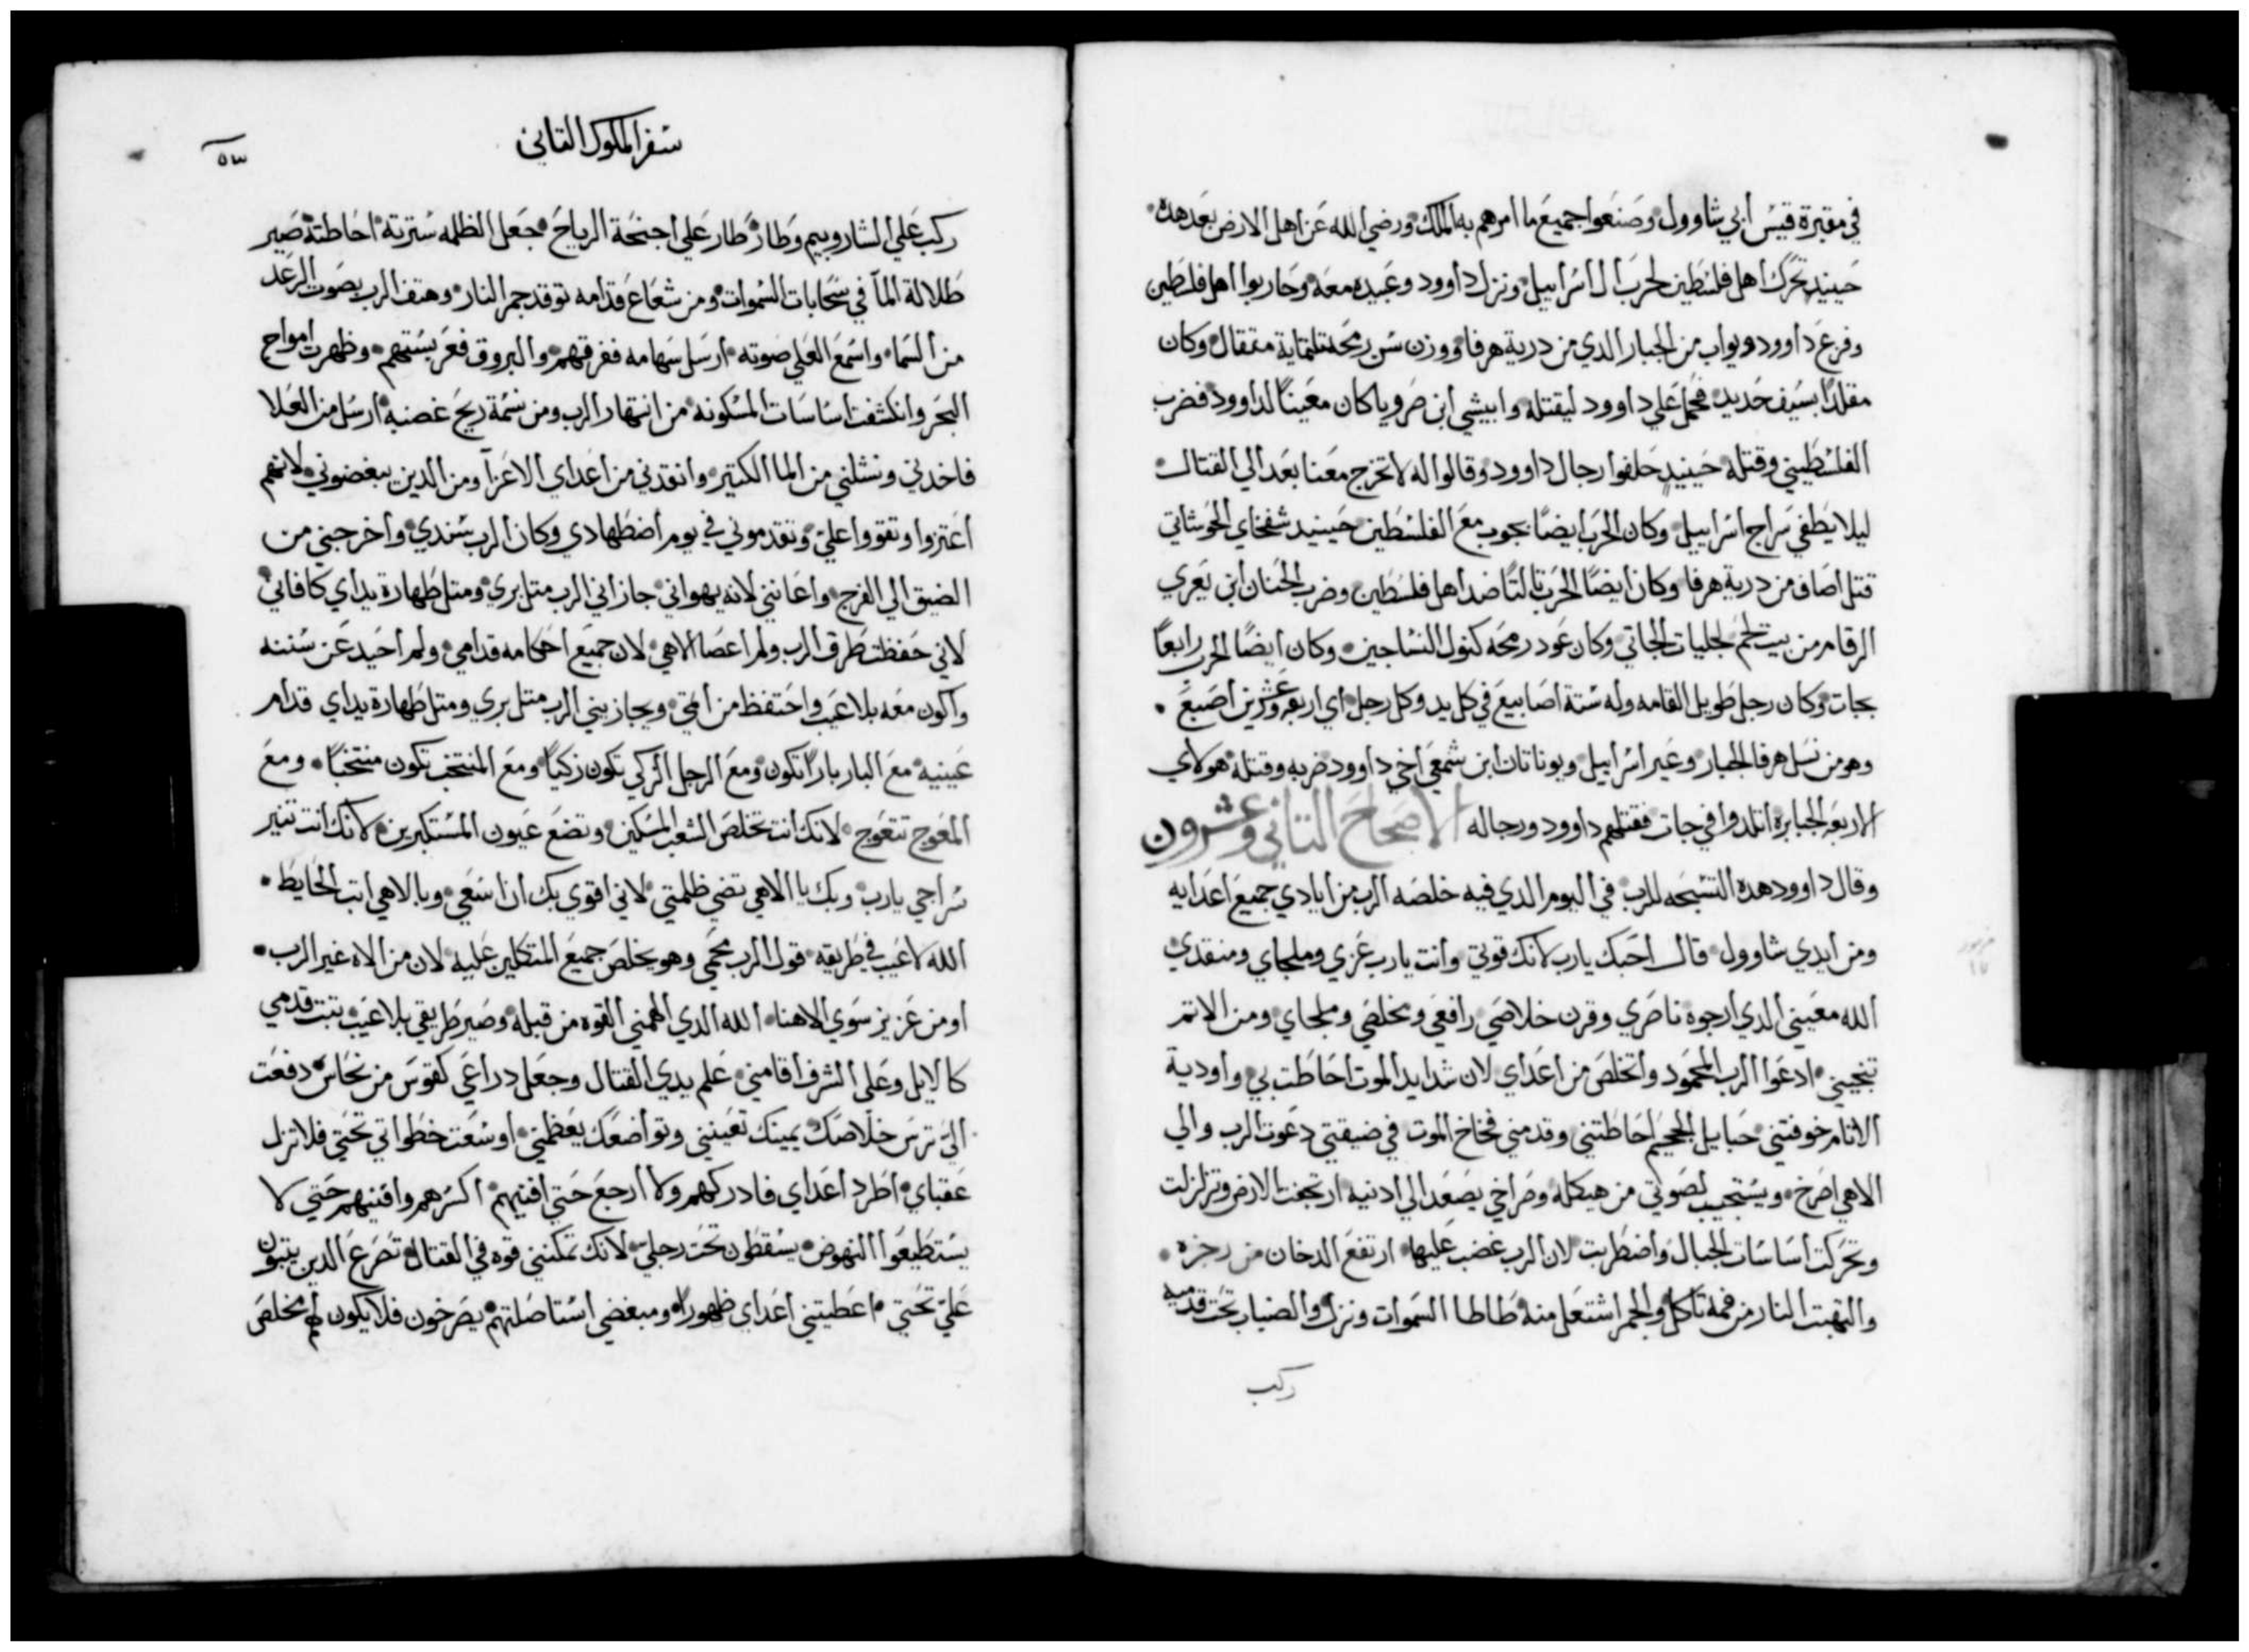 في مقبرة قيس ابي شاوول وصنعوا جميع ما امرهم به الملك ورضي الله عن اهل الارض بعد هده
حينيد تحرك اهل فلسطين لحرب ال اسراييل ونزل داوود وعبيده معه وحاربوا اهل فلسطين
وفرع داوود ويواب من الجبار الدي من درية هرفا ووزن سن رمحه تلتماية متقال وكان
مقلدا بسيف حديد فحمل علي داوود ليقتله وابيشي ابن صرويا كان معينا لداوود فضرب
الفلسطيني وقتله حينيد حلفوا رجال داوود وقالوا له لا تخرج معنا بعد الي القتال
ليلا يطفي سراج اسراييل وكان الحرب ايضا بجوب مع الفلسطين حينيد شفخاي الحوشاتي
قتل اصاف من درية هرفا وكان ايضا الحرب تالتا ضد اهل فلسطين وضرب الحنان ابن يعري
الرقام من بيت لحم لجليات الجاتي وكان عود رمحه كنول النساجين وكان ايضا الحرب رابعا
بجات وكان رجل طويل القامه وله ستة اصابيع في كل يد وكل رجل اي اربعه وعشرين اصبع
وهو من نسل هرفا الجبار وعير اسراييل ويوناتان ابن شمعي اخي داوود ضربه وقتله هولاي
الاربعه الجبابره اتلدوا في جات فقتلهم داوود ورجاله الاصحاح التاني وعشرون
وقال داوود هده التسبحه للرب في اليوم الدي فيه خلصه الرب من ايادي جميع اعدايه
ومن ايدي شاوول قال احبك يارب لانك قوتي وانت يارب عزي وملجاي ومنقدي
الله معيني الدي ارجوه ناصري وقرن خلاصي رافعي ومخلصي وملجاي ومن الاتم
تنجيني ادعوا الرب المحمود واتخلص من اعداي لان شدايد الموت احاطت بي واودية
الاتام خوفتني حبايل الجحيم احاطتني وقدمني فخاخ الموت في ضيقتي دعوت الرب والي
الاهي اصرخ ويستجيب لصوتي من هيكله وصراخي يصعد الي ادنيه ارتجت الارض وتزلزلت
وتحركت اساسات الجبال واضطربت لان الرب غضب عليها ارتفع الدخان من رجزه
والتهبت النار من فمه تاكل والجمر اشتعل منه طاطا السموات ونزل والضباب تحت قدميه
ركب
سفر الملوك التاني
٥٣
ركب علي الشاروبيم وطار طار علي اجنحة الرياح جعل الظلمه سترته احاطته صير
طلالة المآ في سحابات السموات ومن شعاع قدامه توقد جمر النار وهتف الرب بصوت الرعد
من السما واسمع العلي صوته ارسل سهامه ففرقهم والبروق فعربستهم وظهرت امواج
البحر وانكشفت اساسات المسكونه من انتهار الرب ومن نسمة ريح غضبه ارسل من العلا
فاخدني ونشلني من الما الكتير وانقدني من اعداي الاعزآ ومن الدين يبغضوني لانهم
اعتزوا وتقووا علي وتقدموني في يوم اضطهادي وكان الرب سندي واخرجني من
الضيق الي الفرج واعانني لانه يهواني جازاني الرب متل بري ومتل طهارة يداي كافاني
لاني حفظت طرق الرب ولم اعصا الاهي لان جميع احكامه قدامي ولم احيد عن سننه
واكون معه بلا عيب واحتفظ من اتمي ويجازيني الرب متل بري ومتل طهارة يداي قدام
عينيه مع البار بارا تكون ومع الرجل الزكي تكون زكيا ومع المنتخب تكون منتخبا ومع
المعوج تتعوج لانك انت تخلص الشعب المسكين وتضع عيون المستكبرين لانك انت تنير
سراجي يارب وبك يا الاهي تضي ظلمتي لاني اقوي بك ان اسعي وبالاهي اتب الحايط
الله لا عيب في طريقه قول الرب محمي وهو يخلص جميع المتكلين عليه لان من الاه غير الرب
او من عزيز سوي الاهنا الله الدي الهمني القوه من قبله وصير طريقي بلا عيب تبت قدمي
كالايل وعلي الشرف اقامني علم يدي القتال وجعل دراعي كقوس من نحاس دفعت
الي ترس خلاصك يمينك تعينني وتواضعك يعظمني اوسعت خطواتي تحتي فلا تزل
عقباي اطرد اعداي فادركهم ولا ارجع حتي افنيهم اكسرهم وافنيهم حتي لا
يستطيعوا النهوض يسقطون تحت رجلي لانك تمكنني قوه في القتال تصرع الدين يتبون
علي تحتي اعطيتني اعداي ظهورا ومبغضي استاصلتهم يصرخون فلا يكون لهم مخلص